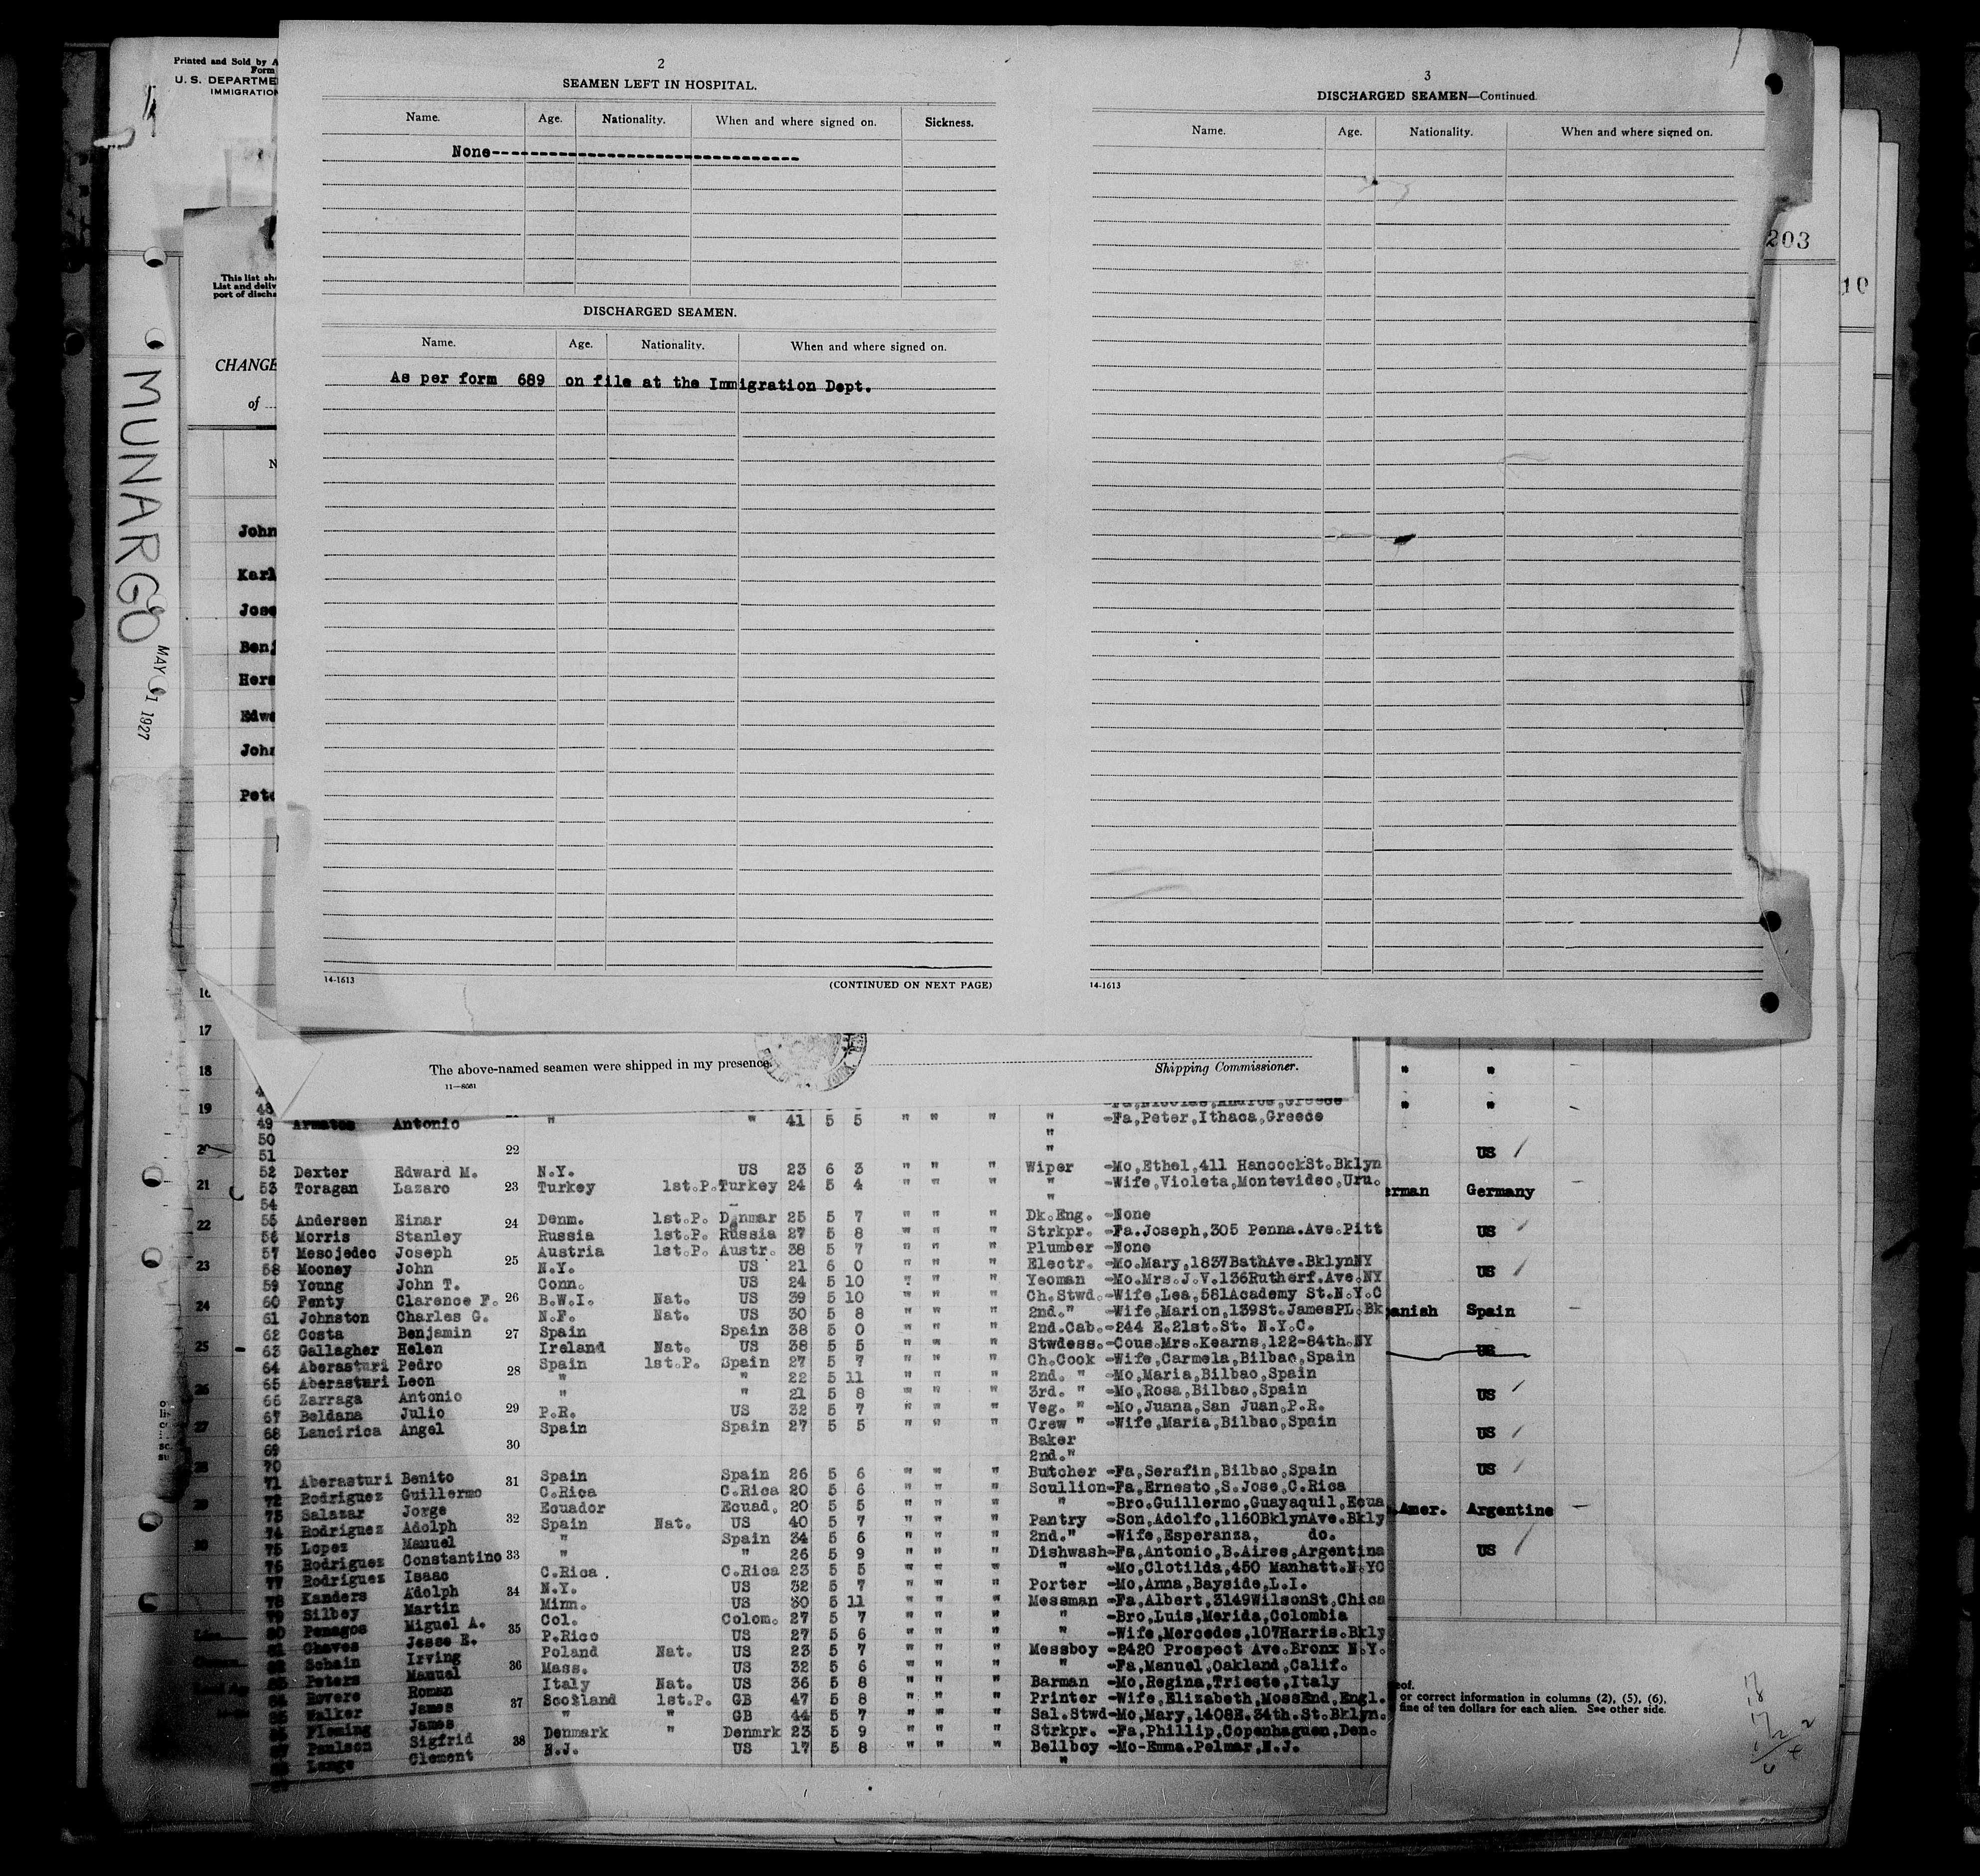 Printed and Sold by A
Form
U. S. DEPARTME
IMMIGRATION
MUNARGO
MAY 1 1927
This list sh
List and deliv
port of discha
CHANGE
of
N
John
Karl
Jose
Benj
Hers
Edwa
John
Pete
2
SEAMEN LEFT IN HOSPITAL.
Name. Age. Nationality. When and where signed on. Sickness.
None--------------------------------
DISCHARGED SEAMEN.
Name. Age. Nationality. When and where signed on.
As per form 689 on file at the Immigration Dept.
14-1613 (CONTINUED ON NEXT PAGE)
3
DISCHARGED SEAMEN—Continued.
Name. Age. Nationality. When and where signed on.
14-1613
203
10
The above-named seamen were shipped in my presence.
Shipping Commissioner.
11—8661
48 -Fa, Nicolas, Andros, Greece
49 Armatos Antonio " " 41 5 5 " " " " -Fa,Peter,Ithaca,Greece
50 "
51 22 "
52 Dexter Edward M. N.Y. US 23 6 3 " " " Wiper -Mo,Ethel,411 HancockSt.Bklyn
53 Toragan Lazaro 23 Turkey 1st.P. Turkey 24 5 4 " " " " -Wife,Violeta,Montevideo,Uru.
54 "
55 Andersen Einar 24 Denm. 1st.P. Denmar 25 5 7 " " " Dk.Eng. -None
56 Morris Stanley Russia 1st.P. Russia 27 5 8 " " " Strkpr. -Fa.Joseph,305 Penna.Ave.Pitt
57 Mesojedec Joseph Austria 1st.P. Austr. 38 5 7 " " " Plumber -None
58 Mooney John 25 N.Y. US 21 6 0 " " " Electr. -Mo.Mary,1837BathAve.BklynNY
59 Young John T. Conn. US 24 5 10 " " " Yeoman -Mo.Mrs.J.V.136Rutherf.Ave.NY
60 Fenty Clarence F. 26 B.W.I. Nat. US 39 5 10 " " " Ch.Stwd.-Wife,Lea,581Academy St.N.Y.C
61 Johnston Charles G. N.F. Nat. US 30 5 8 " " " 2nd." -Wife,Marion,139St.JamesPL.Bk
62 Costa Benjamin 27 Spain Spain 38 5 0 " " " 2nd.Cab.-244 E.21st.St. N.Y.C.
63 Gallagher Helen Ireland Nat. US 38 5 5 " " " Stwdess.-Cous.Mrs.Kearns,122-84th.NY
64 Aberasturi Pedro 28 Spain 1st.P. Spain 27 5 7 " " " Ch.Cook -Wife,Carmela,Bilbao,Spain
65 Aberasturi Leon " " 22 5 11 " " " 2nd. " -Mo,Maria,Bilbao,Spain
66 Zarraga Antonio " " 21 5 8 " " " 3rd. " -Mo,Rosa,Bilbao,Spain
67 Beldana Julio 29 P.R. US 32 5 7 " " " Veg. " -Mo,Juana,San Juan,P.R.
68 Lancirica Angel Spain Spain 27 5 5 " " " Crew " -Wife,Maria,Bilbao,Spain
69 Baker
70 30 2nd."
71 Aberasturi Benito 31 Spain Spain 26 5 6 " " " Butcher -Fa,Serafin,Bilbao,Spain
72 Rodriguez Guillermo C.Rica C.Rica 20 5 6 " " " Scullion-Fa,Ernesto,S.Jose,C.Rica
73 Salazar Jorge Ecuador Ecuad. 20 5 5 " " " " -Bro.Guillermo,Guayaquil,Ecua
74 Rodriguez Adolph 32 Spain Nat. US 40 5 7 " " " Pantry -Son,Adolfo,1160BklynAve.Bkly
75 Lopez Manuel " Spain 34 5 6 " " " 2nd." -Wife,Esperanza, do.
76 Rodriguez Constantino 33 " " 26 5 9 " " " Dishwash-Fa,Antonio,B.Aires,Argentina
77 Rodriguez Isaac C.Rica. C.Rica 23 5 5 " " " " -Mo,Clotilda,450 Manhatt.N.YC
78 Kanders Adolph 34 N.Y. US 32 5 7 " " " Porter -Mo,Anna,Bayside,L.I.
79 Silbey Martin Minn. US 30 5 11 " " " Messman -Fa,Albert,3149WilsonSt,Chica
80 Penagos Miguel A. Col. Colom. 27 5 7 " " " " -Bro,Luis,Merida,Colombia
81 Chaves Jesse E. 35 P.Rico US 27 5 6 " " " " -Wife,Mercedes,107Harris.Bkly
82 Schain Irving Poland Nat. US 23 5 7 " " " Messboy -2420 Prospect Ave.Bronx N.Y.
83 Peters Manuel 36 Mass. US 32 5 6 " " " " -Fa,Manuel,Oakland,Calif.
84 Rovere Roman Italy Nat. US 36 5 8 " " " Barman -Mo,Regina,Trieste,Italy
85 Walker James 37 Scotland 1st.P. GB 47 5 8 " " " Printer -Wife,Elizabeth,MossEnd,Engl.
86 Fleming James " " GB 44 5 7 " " " Sal.Stwd-Mo,Mary,1408E.34th.St.Bklyn.
87 Paulson Sigfrid 38 Denmark " Denmrk 23 5 9 " " " Strkpr. -Fa,Phillip,Copenhaguen,Den.
88 Lange Clement N.J. US 17 5 8 " " " Bellboy -Mo-Emma.Pelmar,N.J.
"
16
17
18
19
20
21
22
23
24
25
26
27
28
29
30
" "
" "
US
erman Germany
US
US
anish Spain
US
US
US
US
Amer. Argentine
US
eof.
or correct information in columns (2), (5), (6),
fine of ten dollars for each alien. See other side.